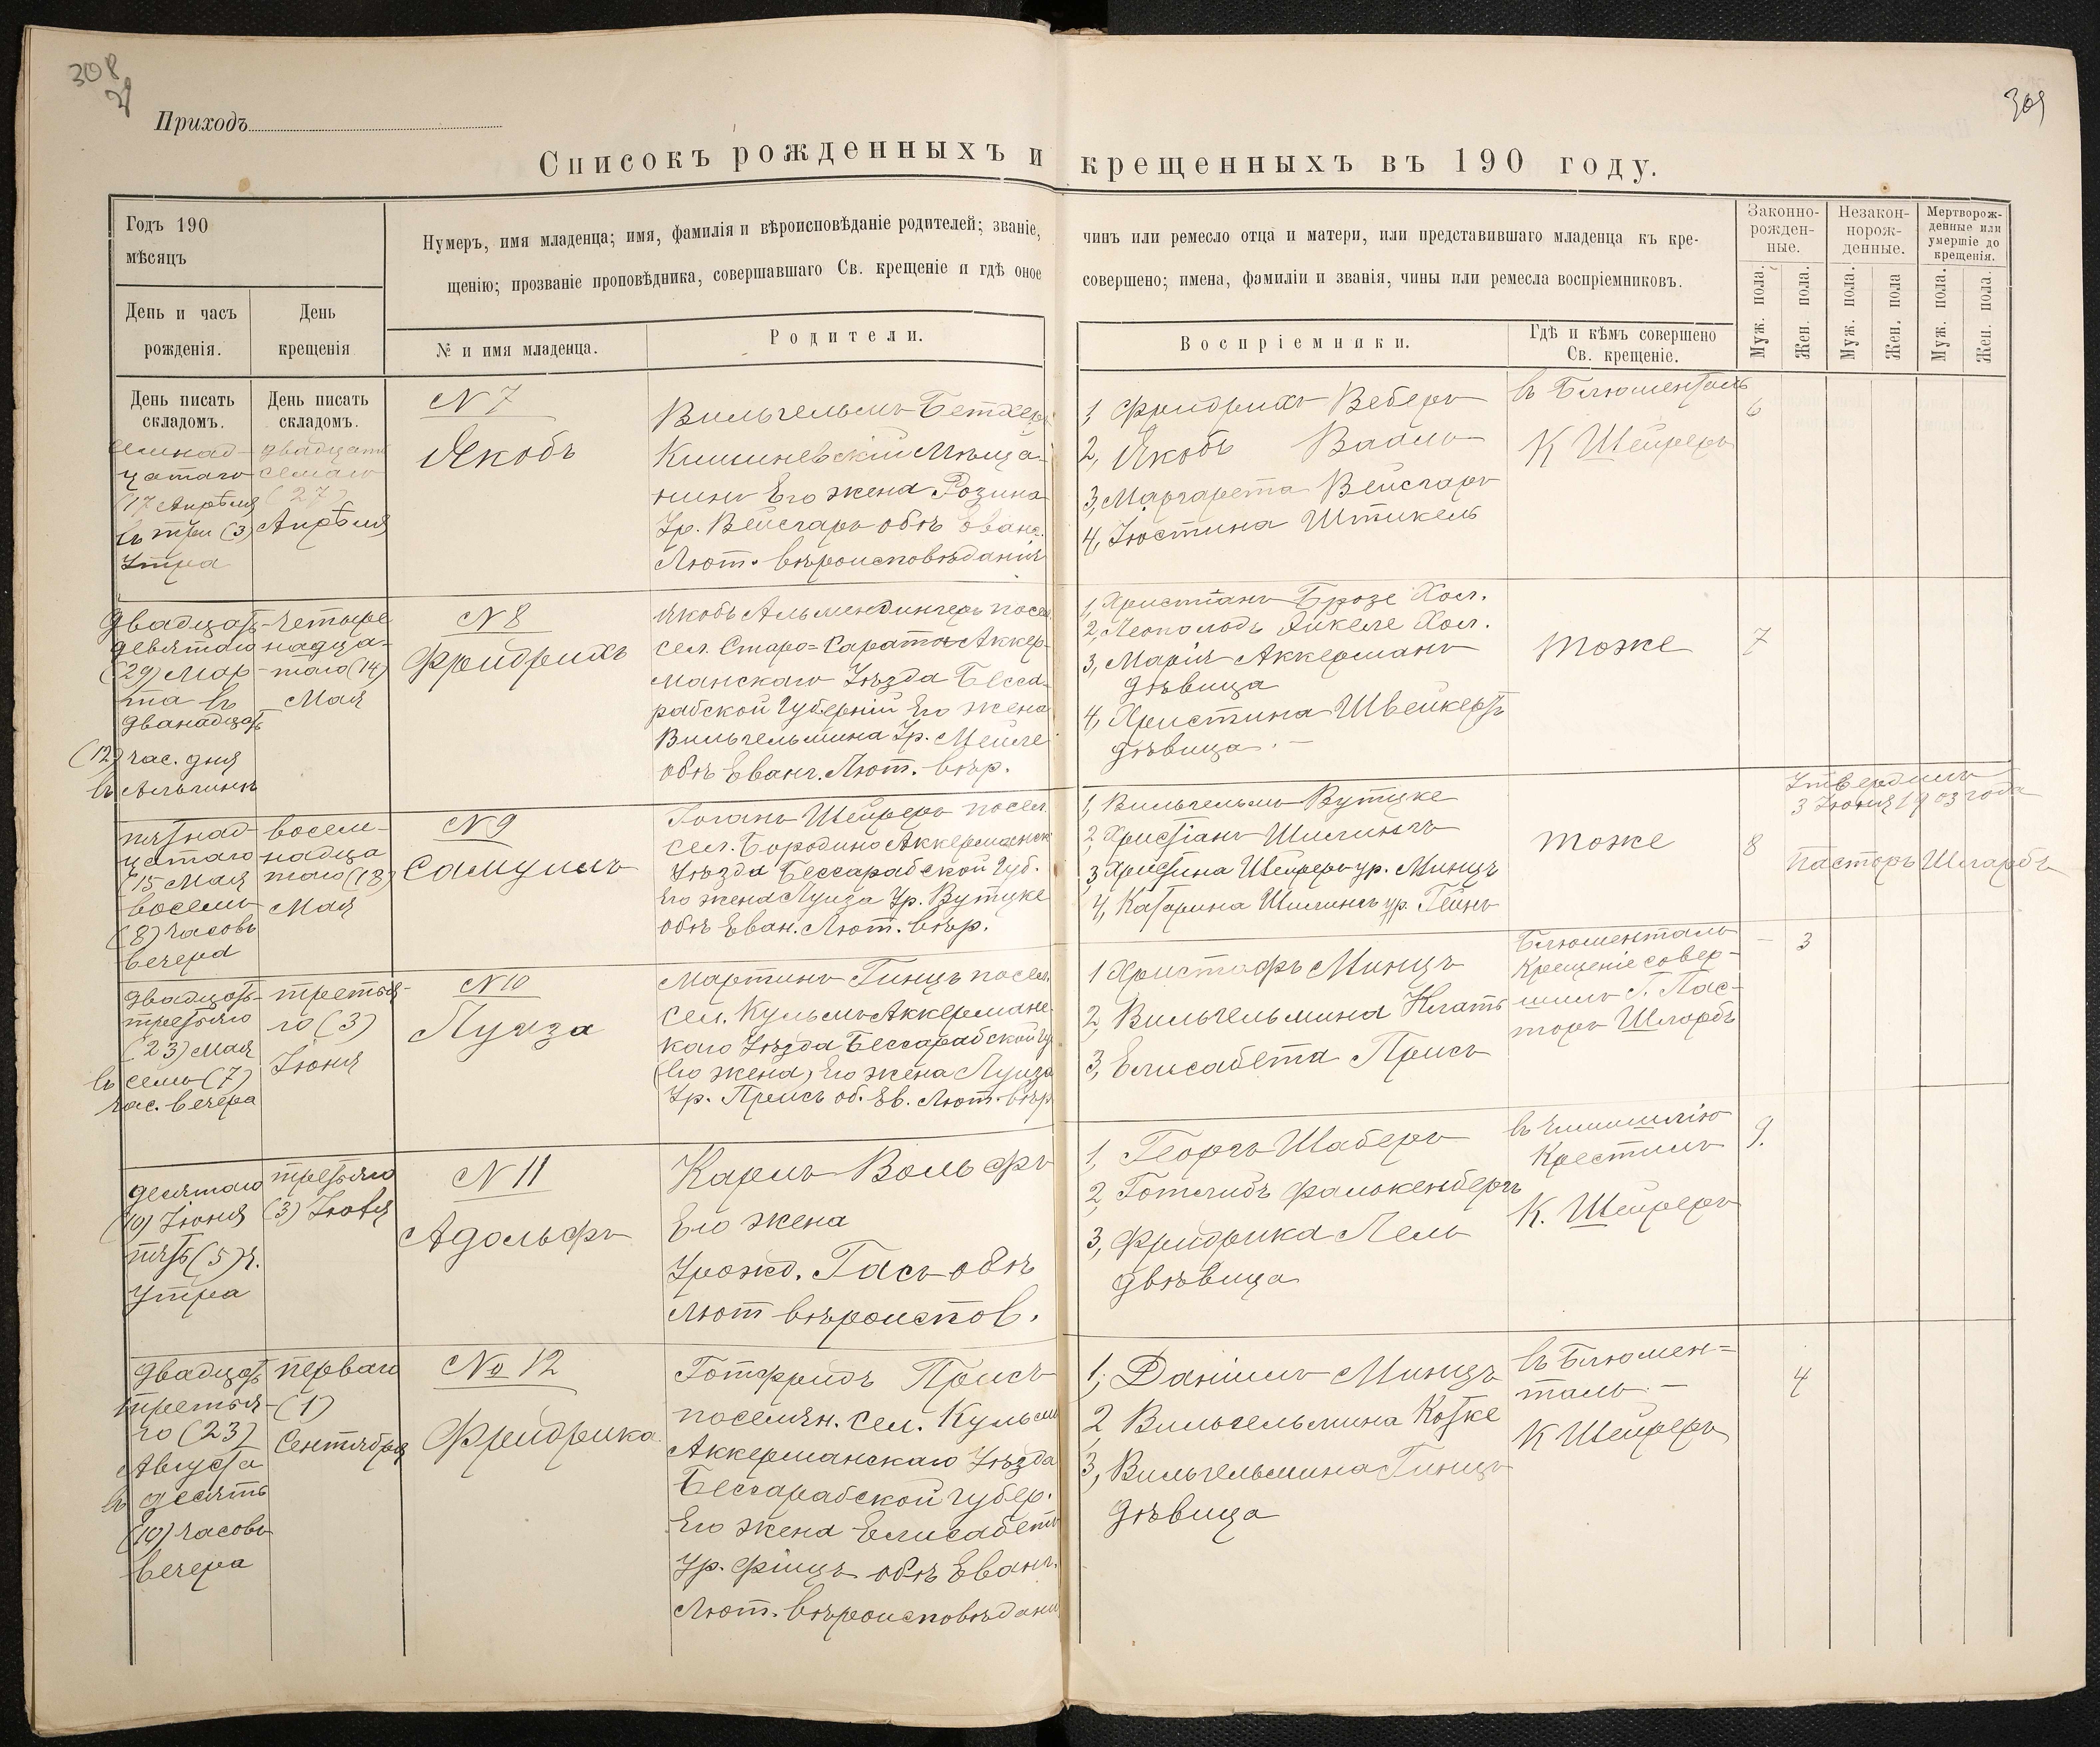 308
309
Приходъ
Списокъ рожденныхъ и крещенныхъ въ 190 году.
Годъ 190
мѣсяцъ
Нумеръ, имя младенца; имя, фамилія и вѣроисповѣданіе родителей; званіе, чинъ или ремесло отца и матери, или представившаго младенца къ кре-
щенію; прозваніе проповѣдника, совершавшаго Св. крещеніе и гдѣ оное совершено; имена, фамиліи и званія, чины или ремесла воспріемниковъ.
Законно-
рожден-
ные.
Незакон-
норож-
денные.
Мертворож-
денные или
умершіе до
крещенія.
День и часъ
рожденія.
День
крещенія
№ и имя младенца.
Родители.
Воспріемники.
Гдѣ и кѣмъ совершено
Св. крещеніе.
Муж. пола.
Жен. пола.
Муж. пола.
Жен. пола
Муж. пола.
Жен. пола.
День писать
складомъ.
День писать
складомъ.
семнад-
цатаго
(17 Апрѣля
въ три (3)
Утра
двадцать
седмаго
(27)
Апрѣля
N 7
Якобъ
Вильгельмъ Бетхеръ
Кишиневскій Мѣща-
нинъ Его жена Розина
Ур. Вейсгаръ обѣ Еванг.
Лют. вѣроисповѣданія
1, Фридрихъ Веберъ
2, Якобъ Вааль
3, Маргарета Вейсгаръ
4, Юстина Штикель
въ Блюменталь
К Шейреръ
6
двадцать-
девятаго
(29) Мар-
та въ
дванадцать
(12) час. дня
въ
четыре
надца-
таго (14)
Мая
N 8
Фридрихъ
Якобъ Альмендингеръ посел.
сел. Старо-Сарата Аккер-
манскаго Уѣзда Бесса-
рабской Губерніи Его жена
Вильгельмина Ур. Мейле
обѣ Еванг. Лют. вѣр.
1, Христіанъ Брозе Хол.
2, Леопольдъ Айкеле Хол.
3, Марія Аккерманъ
дѣвица
4, Христина Швейкертъ
дѣвица. –
тоже
7
пятнад-
цатаго
(15 Мая
восемь
(8) часовъ
вечера
восем-
надца
таго (18)
Мая
N 9
Самуилъ
Іоганъ Шейреръ посел.
сел. Бородино Аккерманск.
Уѣзда Бессарабской Губ.
Его жена Луиза Ур. Вутцке
обѣ Еван. Лют. вѣр.
1, Вильгельмъ Вутцке
2, Христіанъ Шилингъ
3, Христина Шейреръ ур. Минцъ
4, Катарина Шилингъ ур. Гейнъ
тоже
8
Утвердилъ
3 Іюня 1903 года
Пасторъ Шлаrбъ
двадцать-
третьяго
(23) Мая
въ семь (7)
час. вечера
третья-
го (3)
Іюня
N 10
Луиза
Мартинъ Гинцъ посел.
сел. Кульмъ Аккерманс-
каго Уѣзда Бессарабской Гу
(Его жена) Его жена Луиза
Ур. Прись об. Ев. Лют. вѣр
1 Христофъ Минцъ
2, Вильгельмина Клатъ
3, Елисабета Прись
Блюменталь
Крещеніе совер-
шилъ Г. Пас-
торъ Шлорбъ
–
3
десятаго
(10) Іюня
пять (5) ч.
Утра
третьяго
(3) Іюля
N 11
Адольфъ
Карлъ Вольфъ
Его жена
Урожд. Гась обѣ
Лют вѣроиспов.
1, Георгъ Шаберъ
2, Готлибъ Фалькенбергъ
3, Фридрика Лель
дѣвица
въ
Крестилъ
К. Шейреръ
9.
двадцать
третья-
го (23)
Августа
въ десять
(10) часовъ
вечера
перваго
(1)
Сентября
№ 12
Фридрика
Готфридъ Прись
поселян. сел. Кульмъ
Аккерманскаго Уѣзда
Бессарабской губер.
Его жена Елисабета
Ур. Финцъ обѣ Еванг.
Лют. вѣроисповѣдани
1, Даніилъ Минцъ
2 Вильгельмина Котке
3, Вильгельмина Гинцъ
дѣвица
въ Блюмен-
таль. –
К Шейреръ
4